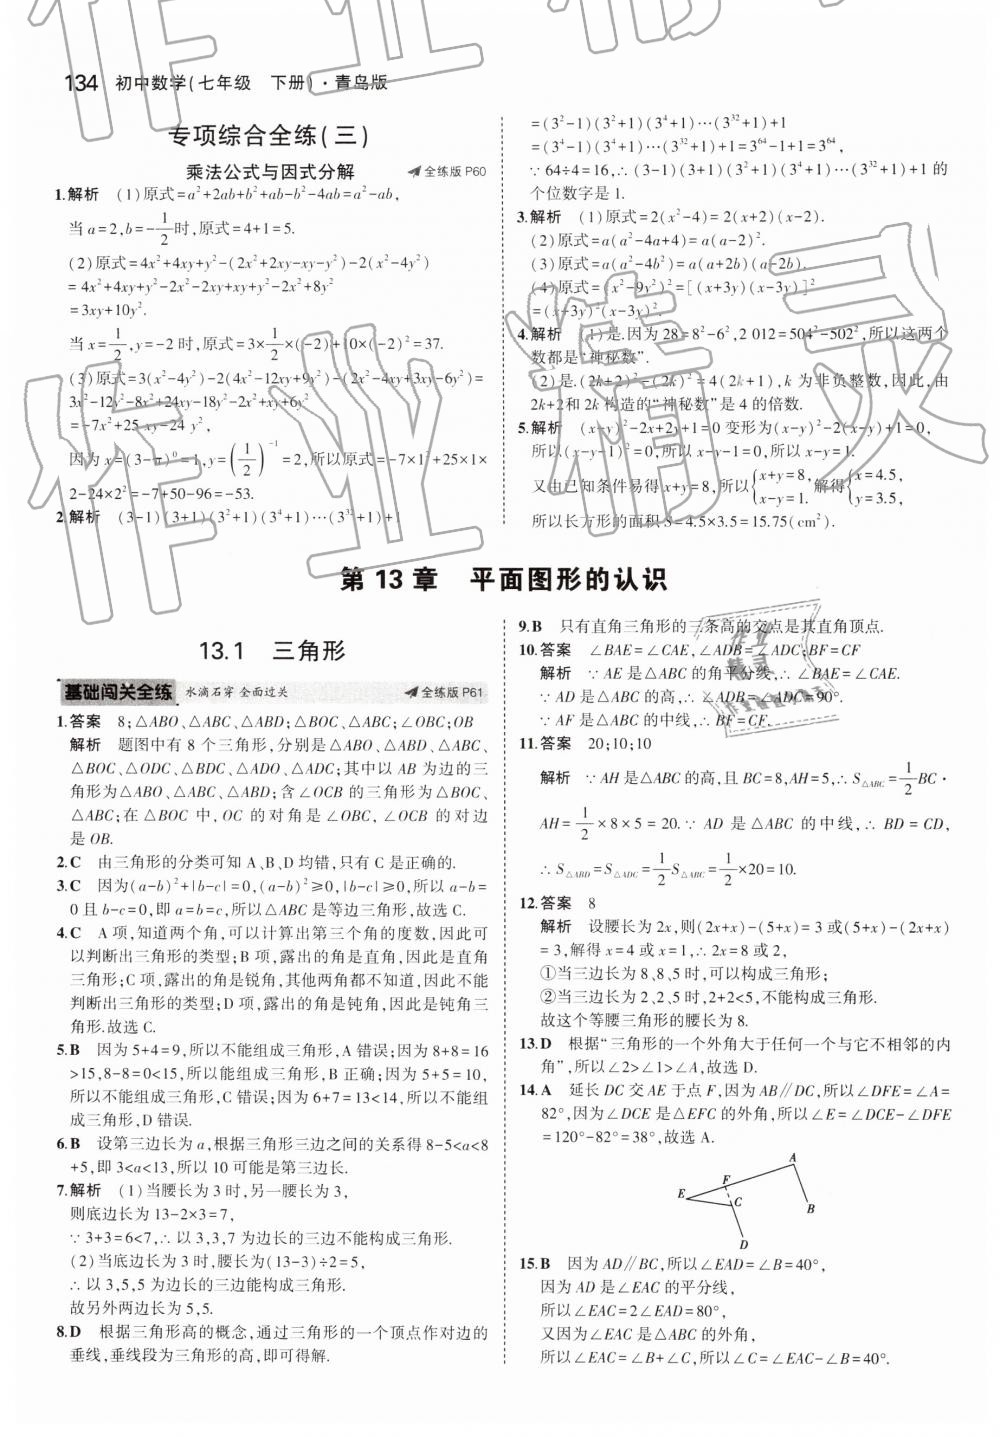 134 初中数学(七年级 下册)·青鸟版
专项综合全练(三)
乘法公式与因式分解 全练版 P60
1.解析 (1)原式=a²+2ab+b²+ab-b²-4ab=a²-ab,
当 a=2,b=-1/2时,原式=4+1=5.
(2)原式=4x²+4xy+y²-(2x²+2xy-xy-y²)-2(x²-4y²)
=4x²+4xy+y²-2x²-2xy+xy+y²-2x²+8y²
=3xy+10y².
当 x=1/2,y=-2 时,原式=3×1/2×(-2)+10×(-2)²=37.
(3)原式=3(x²-4y²)-2(4x²-12xy+9y²)-(2x²-4xy+3xy-6y²)=
3x²-12y²-8x²+24xy-18y²-2x²+xy+6y²
=-7x²+25xy-24 y²,
因为 x=(3-π)⁰=1,y=(1/2)⁻¹=2,所以原式=-7×1²+25×1×
2-24×2²=-7+50-96=-53.
2.解析 (3-1)(3+1)(3²+1)(3⁴+1)…(3³²+1)+1
=(3²-1)(3²+1)(3⁴+1)…(3³²+1)+1
=(3⁴-1)(3⁴+1)…(3³²+1)+1=3⁶⁴-1+1=3⁶⁴,
∵ 64÷4=16,∴ (3-1)(3+1)(3²+1)(3⁴+1)…(3³²+1)+1的
个位数字是 1.
3.解析 (1)原式=2(x²-4)=2(x+2)(x-2).
(2)原式=a(a²-4a+4)=a(a-2)².
(3)原式=a(a²-4b²)=a(a+2b)(a-2b).
(4)原式=(x²-9y²)²=[(x+3y)(x-3y)]²
=(x+3y)²(x-3y)².
4.解析 (1)是.因为 28=8²-6²,2 012=504²-502²,所以这两个
数都是“神秘数”.
(2)是.(2k+2)²-(2k)²=4(2k+1),k 为非负整数,因此,由
2k+2和 2k 构造的“神秘数”是 4 的倍数.
5.解析 (x-y)²-2x+2y+1=0 变形为(x-y)²-2(x-y)+1=0,
所以(x-y-1)²=0,所以x-y-1=0,所以x-y=1.
又由已知条件易得x+y=8,所以{x+y=8, x-y=1. 解得{x=4.5, y=3.5,
所以长方形的面积 S=4.5×3.5=15.75(cm²).
第 13 章 平面图形的认识
13.1 三角形
基础闯关全练 水滴石穿 全面过关 全练版 P61
1.答案 8;△ABO、△ABC、△ABD;△BOC、△ABC;∠OBC;OB
解析 题图中有 8 个三角形,分别是△ABO、△ABD、△ABC、
△BOC、△ODC、△BDC、△ADO、△ADC;其中以 AB 为边的三
角形为△ABO、△ABC、△ABD;含∠OCB 的三角形为△BOC、
△ABC;在△BOC 中,OC 的对角是∠OBC,∠OCB 的对边
是 OB.
2.C 由三角形的分类可知 A、B、D 均错,只有 C 是正确的.
3.C 因为(a-b)²+|b-c|=0,(a-b)²≥0,|b-c|≥0,所以 a-b=
0 且 b-c=0,即 a=b=c,所以△ABC 是等边三角形,故选 C.
4.C A 项,知道两个角,可以计算出第三个角的度数,因此可
以判断出三角形的类型;B 项,露出的角是直角,因此是直角
三角形;C 项,露出的角是锐角,其他两角都不知道,因此不能
判断出三角形的类型;D 项,露出的角是钝角,因此是钝角三
角形.故选 C.
5.B 因为 5+4=9,所以不能组成三角形,A 错误;因为 8+8=16
>15,8-8=0<15,所以能组成三角形,B 正确;因为 5+5=10,
所以不能组成三角形,C 错误;因为 6+7=13<14,所以不能组
成三角形,D 错误.
6.B 设第三边长为 a,根据三角形三边之间的关系得 8-5<a<8
+5,即 3<a<13,所以 10 可能是第三边长.
7.解析 (1)当腰长为 3 时,另一腰长为 3,
则底边长为 13-2×3=7,
∵ 3+3=6<7,∴ 以 3,3,7 为边长的三边不能构成三角形.
(2)当底边长为 3 时,腰长为(13-3)÷2=5,
∴ 以 3,5,5 为边长的三边能构成三角形.
故另外两边长为 5,5.
8.D 根据三角形高的概念,通过三角形的一个顶点作对边的
垂线,垂线段为三角形的高,即可得解.
9.B 只有直角三角形的三条高的交点是其直角顶点.
10.答案 ∠BAE=∠CAE,∠ADB=∠ADC;BF=CF
解析 ∵ AE 是△ABC 的角平分线,∴ ∠BAE=∠CAE.
∵ AD 是△ABC 的高,∴ ∠ADB=∠ADC=90°.
∵ AF 是△ABC 的中线,∴ BF=CF.
11.答案 20;10;10
解析 ∵ AH 是△ABC 的高,且 BC=8,AH=5,∴ S△ABC=1/2BC·
AH=1/2×8×5=20.∵ AD 是△ABC 的中线,∴ BD=CD,
∴ S△ABD=S△ADC=1/2S△ABC=1/2×20=10.
12.答案 8
解析 设腰长为 2x,则(2x+x)-(5+x)=3 或(5+x)-(2x+x)
=3,解得 x=4 或 x=1,∴ 2x=8 或 2,
①当三边长为 8、8、5 时,可以构成三角形;
②当三边长为 2、2、5 时,2+2<5,不能构成三角形.
故这个等腰三角形的腰长为 8.
13.D 根据“三角形的一个外角大于任何一个与它不相邻的内
角”,所以∠2>∠1>∠A,故选 D.
14.A 延长 DC 交 AE 于点 F,因为 AB∥DC,所以∠DFE=∠A=
82°,因为∠DCE 是△EFC 的外角,所以∠E=∠DCE-∠DFE
=120°-82°=38°,故选 A.
A
F
E
C
B
D
15.B 因为 AD∥BC,所以∠EAD=∠B=40°,
因为 AD 是∠EAC 的平分线,
所以∠EAC=2∠EAD=80°,
又因为∠EAC 是△ABC 的外角,
所以∠EAC=∠B+∠C,所以∠C=∠EAC-∠B=40°.
作业精灵
作业精灵